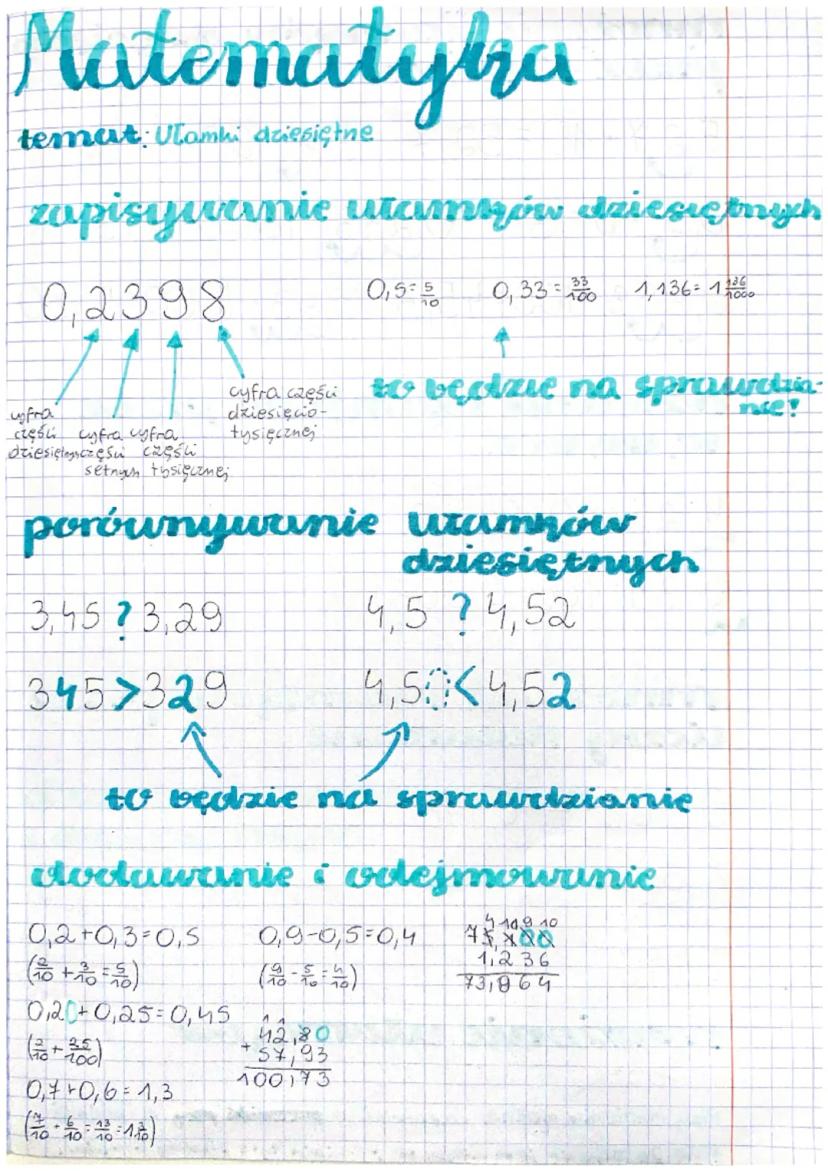 Matematyka
temat: Ułamki dziesiętne
zapisywanie ułamków dziesiętnych
0,2398
0,5=5/10 0,33=33/100 1,136=1 136/1000
cyfra części dziesiętnych
cyfra części setnych
cyfra części tysięcznej
cyfra części dziesięcio-
tysięcznej
to będzie na sprawdzia-
nie!
porównywanie ułamków
dziesiętnych
3,45 ? 3,29 4,5 ? 4,52
345>329 4,50<4,52
to będzie na sprawdzianie
dodawanie i odejmowanie
0,2+0,3=0,5 0,9-0,5=0,4
(2/10+3/10=5/10) (9/10-5/10=4/10)
75,100
1,236
73,864
0,20+0,25=0,45
(2/10+25/100)
42,80
+57,93
100,73
0,7+0,6=1,3
(7/10+6/10=13/10=1 3/10)